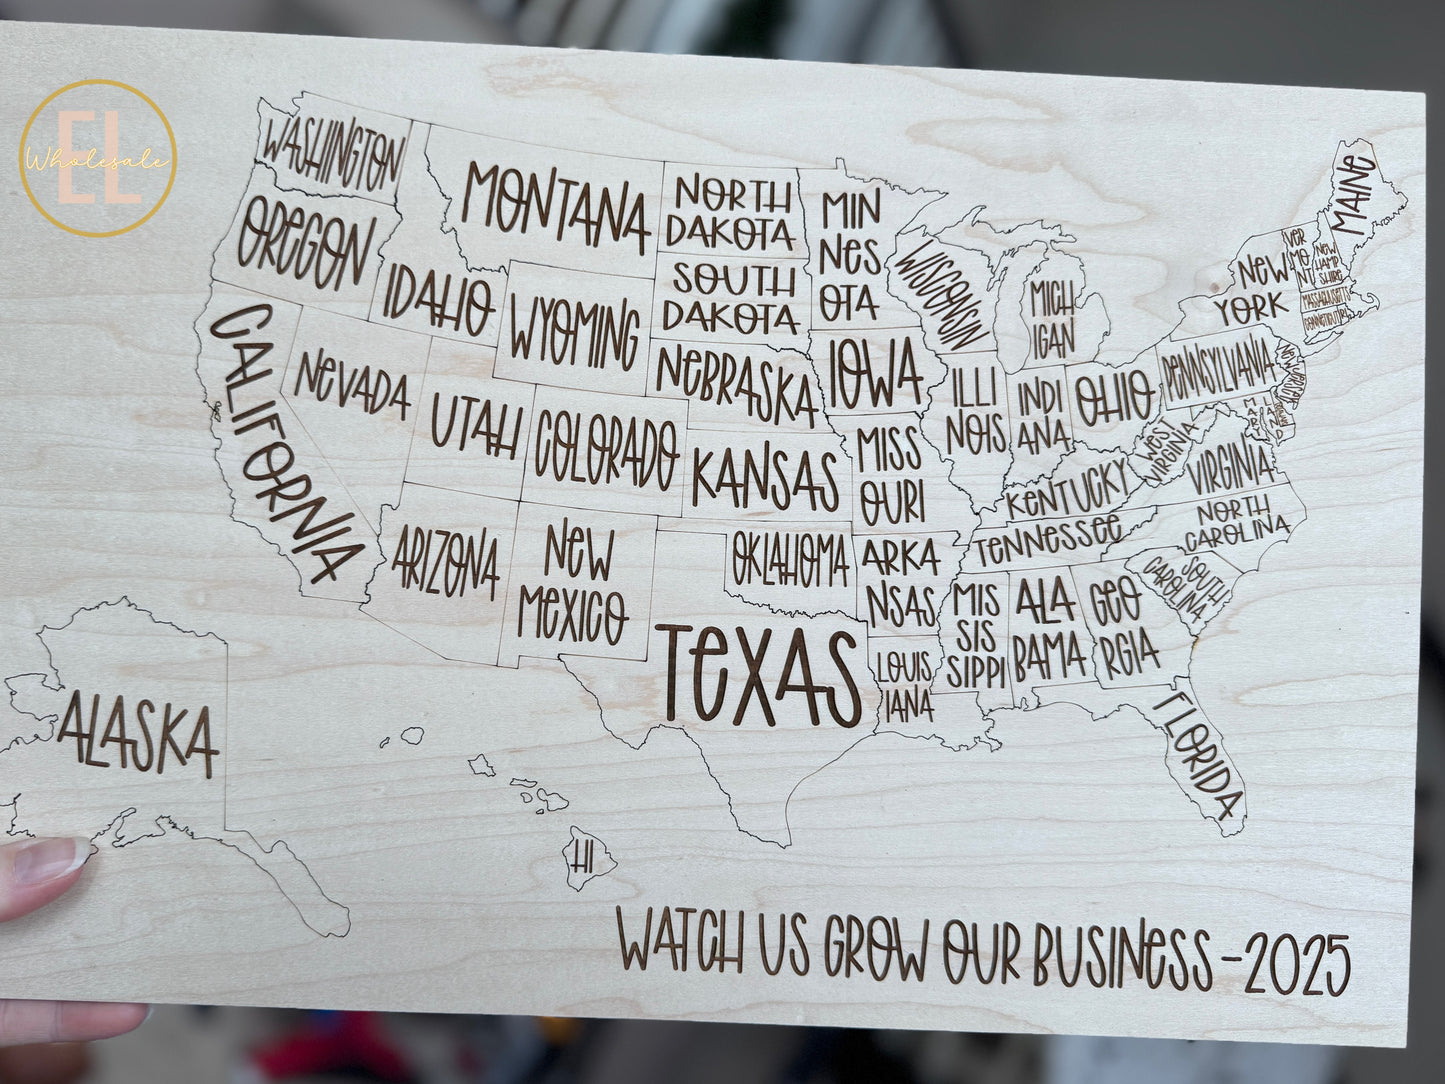 EL
Wholesale
WASHINGTON
OREGON
CALIFORNIA
IDAHO
NEVADA
MONTANA
WYOMING
UTAH
COLORADO
ARIZONA
NEW
MEXICO
NORTH
DAKOTA
SOUTH
DAKOTA
NEBRASKA
KANSAS
OKLAHOMA
TEXAS
MIN
NES
OTA
IOWA
MISS
OURI
ARKA
NSAS
LOUIS
IANA
WISCONSIN
ILLI
NOIS
MICH
IGAN
INDI
ANA
OHIO
KENTUCKY
TENNESSEE
MIS
SIS
SIPPI
ALA
BAMA
GEO
RGIA
FLORIDA
SOUTH
CAROLINA
NORTH
CAROLINA
VIRGINIA
WEST
VIRGINIA
PENNSYLVANIA
NEW
YORK
VER
MO
NT
NEW
HAMP
SHIRE
MAINE
MASSACHUSETTS
CONNECTICUT
RI
NEW JERSEY
MARYLAND
ALASKA
HI
WATCH US GROW OUR BUSINESS - 2025